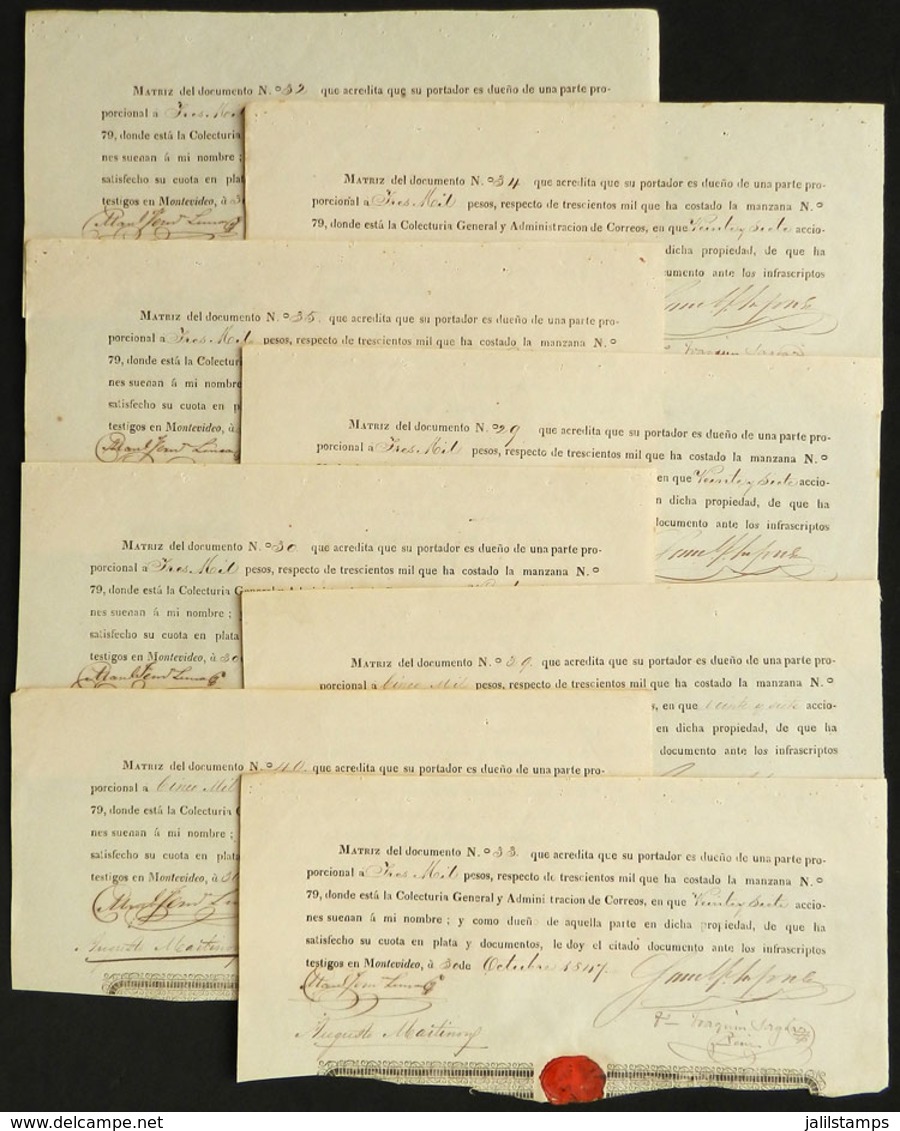 MATRIZ del documento N.º 32 que acredita que su portador es dueño de una parte pro-
porcional á Tres Mil
79, donde está la Colecturia
nes suenan á mi nombre ;
satisfecho su cuota en plat
testigos en Montevideo, à 3
MATRIZ del documento N.º 34 que acredita que su portador es dueño de una parte pro-
porcional à Tres Mil pesos, respecto de trescientos mil que ha costado la manzana N.º
79, donde está la Colecturia General y Administracion de Correos, en que Veinte y Siete accio-
dicha propiedad, de que ha
cumento ante los infrascriptos
MATRIZ del documento N.º 35. que acredita que su portador es dueño de una parte pro-
porcional à Tres Mil pesos, respecto de trescientos mil que ha costado la manzana N.º
79, donde está la Colectur
nes suenan á mi nombre
satisfecho su cuota en p
testigos en Montevideo, à
MATRIZ del documento N.º 29 que acredita que su portador es dueño de una parte pro-
porcional à Tres Mil pesos, respecto de trescientos mil que ha costado la manzana N.º
en que Veinte y Siete accio-
n dicha propiedad, de que ha
documento ante los infrascriptos
MATRIZ del documento N.º 30 que acredita que su portador es dueño de una parte pro-
porcional à Tres Mil pesos, respecto de trescientos mil que ha costado la manzana N.º
79, donde está la Colecturia G
nes suenan á mi nombre ;
satisfecho su cuota en plata
testigos en Montevideo, à 30
MATRIZ del documento N.º 39. que acredita que su portador es dueño de una parte pro-
porcional à Cinco Mil pesos, respecto de trescientos mil que ha costado la manzana N.º
s, en que Veinte y siete accio-
en dicha propiedad, de que ha
documento ante los infrascriptos
MATRIZ del documento N.º 40. que acredita que su portador es dueño de una parte pro-
porcional à Cinco Mil
79, donde está la Colecturia
nes suenan á mi nombre ;
satisfecho su cuota en plata
testigos en Montevideo, à 30
Augusto Martinez
MATRIZ del documento N.º 33. que acredita que su portador es dueño de una parte pro-
porcional à Tres Mil pesos, respecto de trescientos mil que ha costado la manzana N.º
79, donde está la Colecturia General y Admini tracion de Correos, en que Veinte y Siete accio-
nes suenan á mi nombre ; y como dueño de aquella parte en dicha propiedad, de que ha
satisfecho su cuota en plata y documentos, le doy el citado documento ante los infrascriptos
testigos en Montevideo, à 30 de Octubre 1847
Augusto Martinez
Joaquin
jalilstamps